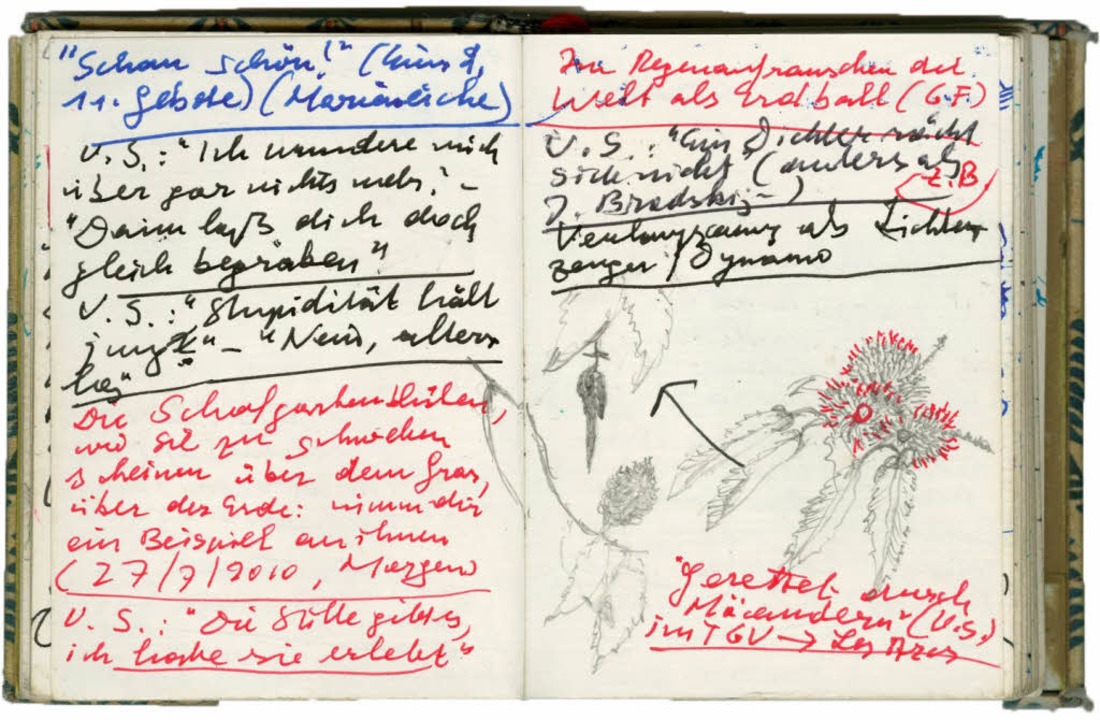 "Schau schön!" (
11. Gebote) (Marianeiche)
V. S.: "Ich wundere mich
über gar nichts mehr." –
"Dann laß dich doch
gleich begraben"
V. S.: "Stupidität hält
jung" – "Nein, alters
los"
Die Schafgarbenblüten,
wie sie zu schweben
scheinen über dem Gras,
über der Erde: nimm dir
ein Beispiel an ihnen
(27/7/2010, Morgen)
V. S.: "Die Stille gibt es,
ich habe sie erlebt"
Im Regenaufrauschen die
Welt als Erdball (G.F.)
V. S.: "Ein Dichter rächt
sich nicht" (anders als
z.B.
J. Brodskij –)
Verlangsamung als Lichter-
zeuger / Dynamo
"Gerettet durch
Mäandern" (V.S.)
im TGV → Les Arcs